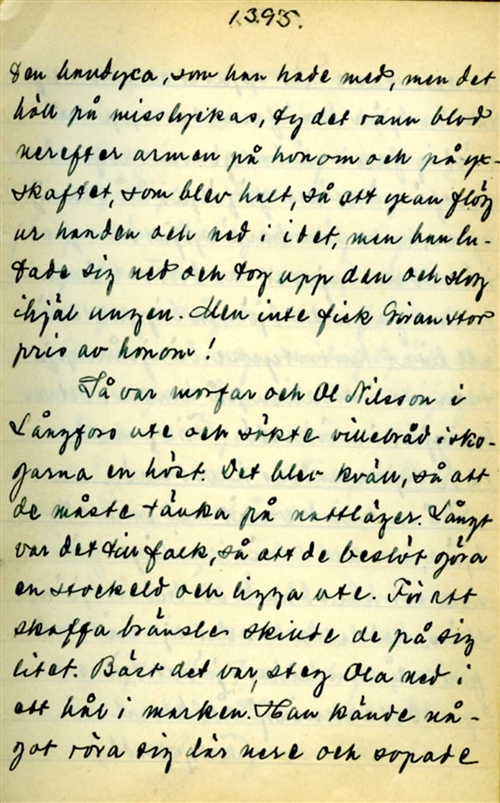 1395.
den handyxa, som han hade med, men det
höll på misslyckas, ty det rann blod
nerefter armen på honom och på yx-
skaftet, som blev halt, så att yxan flög
ur handen och ned i idet, men han lu-
tade sig ned och tog upp den och slog
ihjäl ungen. Men inte fick Göran stor
pris av honom!
Så var morfar och Ol Nilsson i
Långfors ute och sökte villebråd i sko-
garna en höst. Det blev kväll, så att
de måste tänka på nattläger. Långt
var det till folk, så att de beslöt göra
en stockeld och ligga ute. För att
skaffa bränsle skilde de på sig
litet. Bäst det var, steg Ola ned i
ett hål i marken. Han kände nå-
got röra sig där nere och sopade